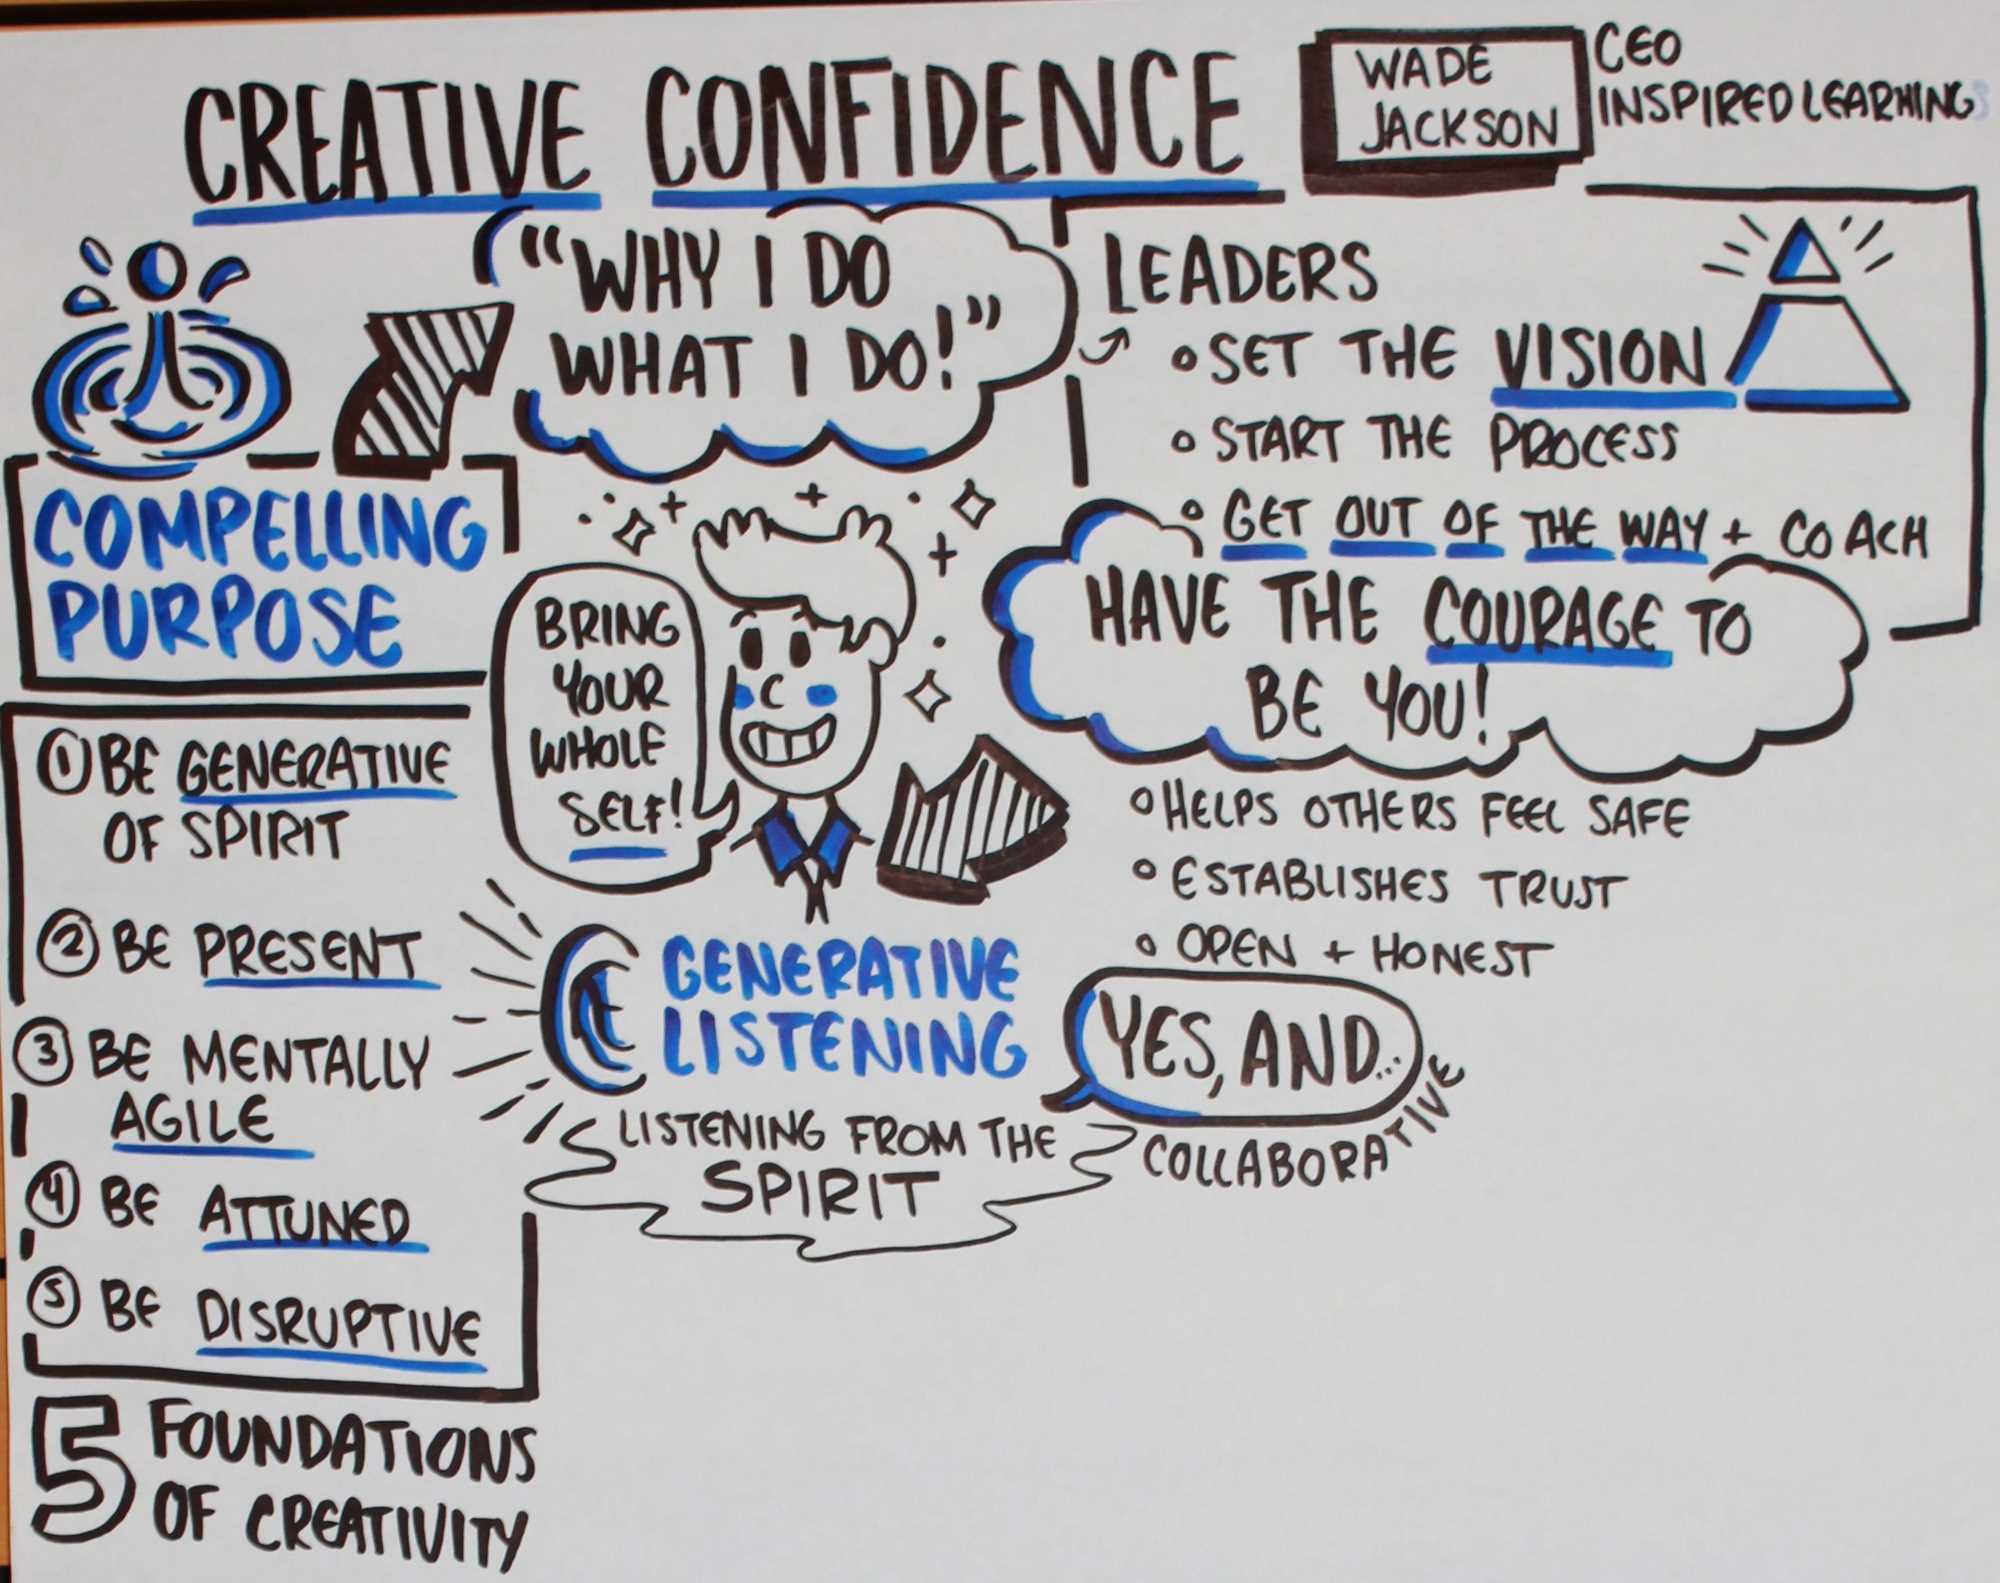 CREATIVE CONFIDENCE
WADE
JACKSON
CEO
INSPIRED LEARNING
"WHY I DO
WHAT I DO!"
COMPELLING
PURPOSE
LEADERS
• SET THE VISION
• START THE PROCESS
• GET OUT OF THE WAY + COACH
HAVE THE COURAGE TO
BE YOU!
• HELPS OTHERS FEEL SAFE
• ESTABLISHES TRUST
• OPEN + HONEST
BRING
YOUR
WHOLE
SELF!
GENERATIVE
LISTENING
LISTENING FROM THE
SPIRIT
YES, AND...
COLLABORATIVE
① BE GENERATIVE
OF SPIRIT
② BE PRESENT
③ BE MENTALLY
AGILE
④ BE ATTUNED
⑤ BE DISRUPTIVE
5 FOUNDATIONS
OF CREATIVITY